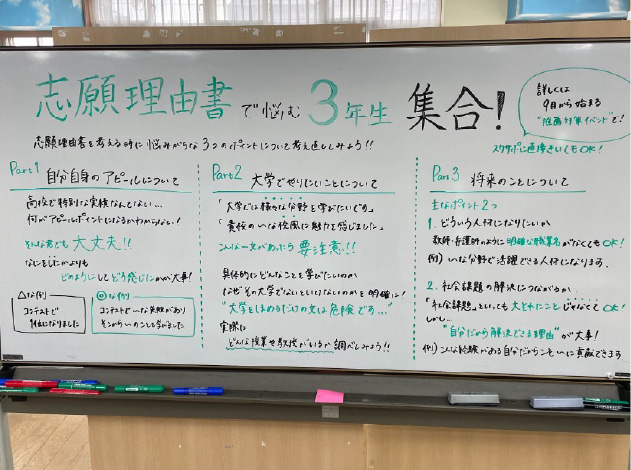 志願理由書で悩む3年生 集合！
詳しくは
9月から始まる
"推薦対策イベント"で！
スタサポに直接きいてもOK！
志願理由書を考える時に悩みがちな3つのポイントについて考え直してみよう!!
Part1 自分自身のアピールについて
高校で特別な実験なんてない…
何がアピールポイントになるかわからない！
そんな君でも 大丈夫!!
なにをしたかよりも
どのようにしてどう感じたかが大事！
△な例
コンテストで
1位になりました
◎な例
コンテストで〃な失敗があり
そこから〃のことを学びました
Part2 大学でやりたいことについて
「大学では様々な分野を学びたいです」
「貴校の〃な校風に魅力を感じました」
こんな一文があったら 要注意!!
具体的にどんなことを学びたいのか
なぜその大学でないといけないのかを明確に！
"大学をほめるだけの文は危険です…"
実際に
どんな授業や教授がいるか調べてみよう!!
Part3 将来のことについて
主なポイント2つ
1. どういう人材になりたいか
教師・看護師のように明確な職業名がなくてもOK！
例）〃な分野で活躍できる人材になります。
2. 社会課題の解決につながるか
「社会課題」といっても大それたことじゃなくてOK！
しかし…
"自分だから解決できる理由"が大事！
例）こんな経験がある自分だからこそ〃に貢献できます